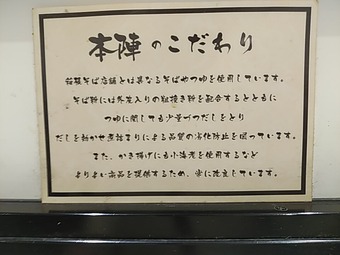 本陣のこだわり
箱根そば店舗とは異なるそばやつゆを使用しています。
そば粉には外皮入りの粗挽き粉を配合するとともに
つゆに関しても少量づつだしをとり
だしを活かせ煮詰まりによる品質の劣化防止を図っています。
また、かき揚げにも小海老を使用するなど
よりよい商品を提供するため、常に改良しています。